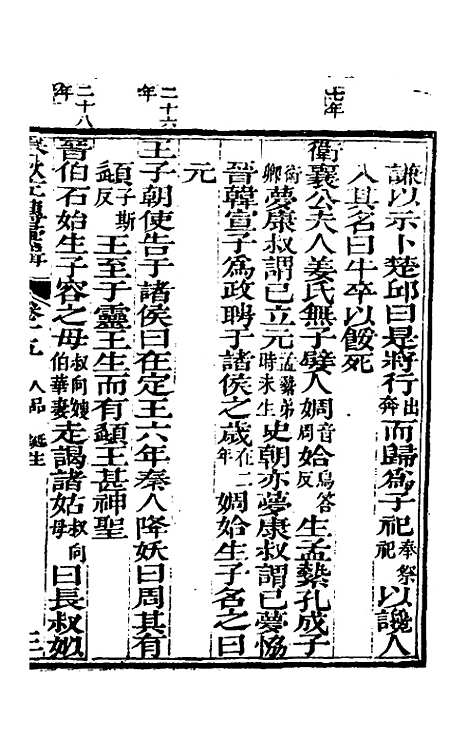 七年
二十六年
二十八年
謙以示卜楚邱曰是將行出奔而歸爲子祀奉祭祀以讒人
入其名曰牛卒以餒死
衛襄公夫人姜氏無子嬖人婤音周姶烏答反生孟縶孔成子
衛卿夢康叔謂已立元孟縶弟時未生史朝亦夢康叔謂已夢恊
晉韓宣子爲政聘于諸侯之歲在二年婤姶生子名之曰
元
王子朝使告于諸侯曰在定王六年秦人降妖曰周其有
頿子斯反王至于靈王生而有頿王甚神聖
晉伯石始生子容之母叔向嫂伯華妻走謁諸姑叔向母曰長叔姒
卷十五 人品 誕生